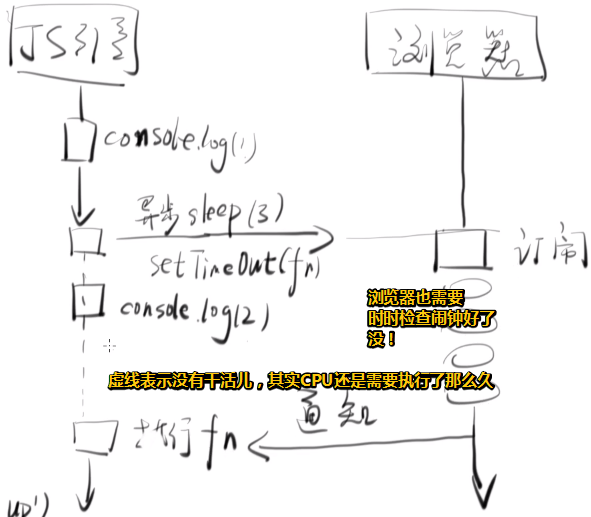 JS引擎
浏览器
console.log(1)
异步sleep(3)
setTimeOut(fn)
订闹
console.log(2)
浏览器也需要
时时检查闹钟好了
没！
虚线表示没有干活儿，其实CPU还是需要执行了那么久
通知
执行fn
up')